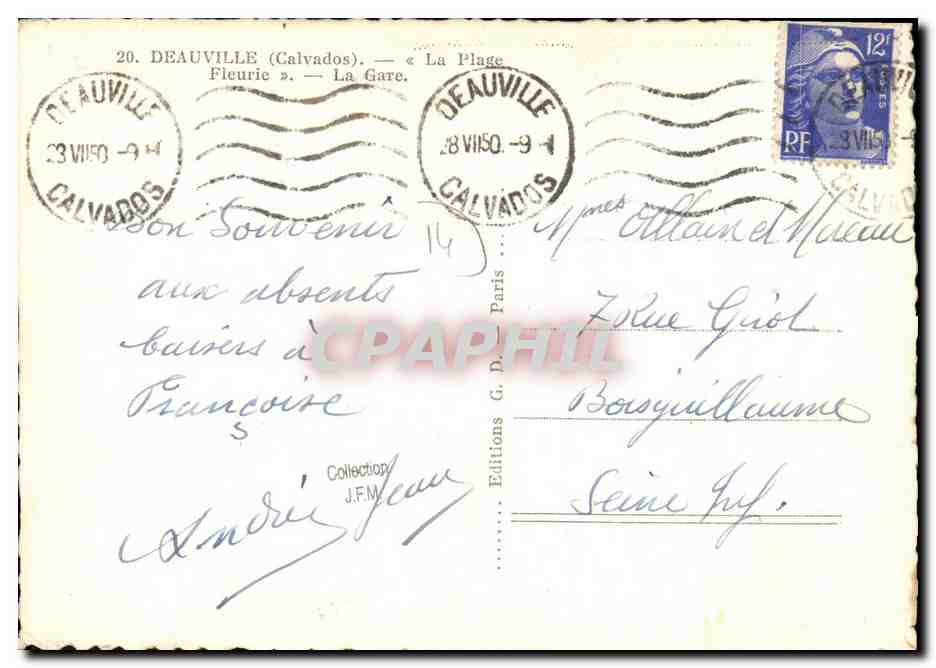 20. DEAUVILLE (Calvados). — « La Plage
Fleurie ». — La Gare.
DEAUVILLE
23 VII50 -9
CALVADOS
DEAUVILLE
28 VII50. -9
CALVADOS
12F
POSTES
RF
28 VII50
CALVAD
14
Bon Souvenir
aux absents
baisers à
Françoise
André Jean
Collection
J.F.M
Editions G. D. Paris
Mmes Allain et Moreau
7 Rue Girot
Boisguillaume
Seine Inf.
CPAPHIL